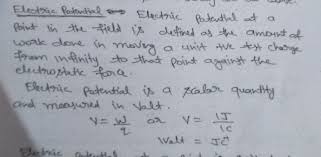 Electric Potential Electric Potential at a
Point in the field is defined as the amount of
work done in moving a unit +ve test charge
from infinity to that point against the
electrostatic force.
Electric potential is a scalar quantity
and measured in Valt.
V = W/q or V = 1J/1C
Walt = JC
Electric